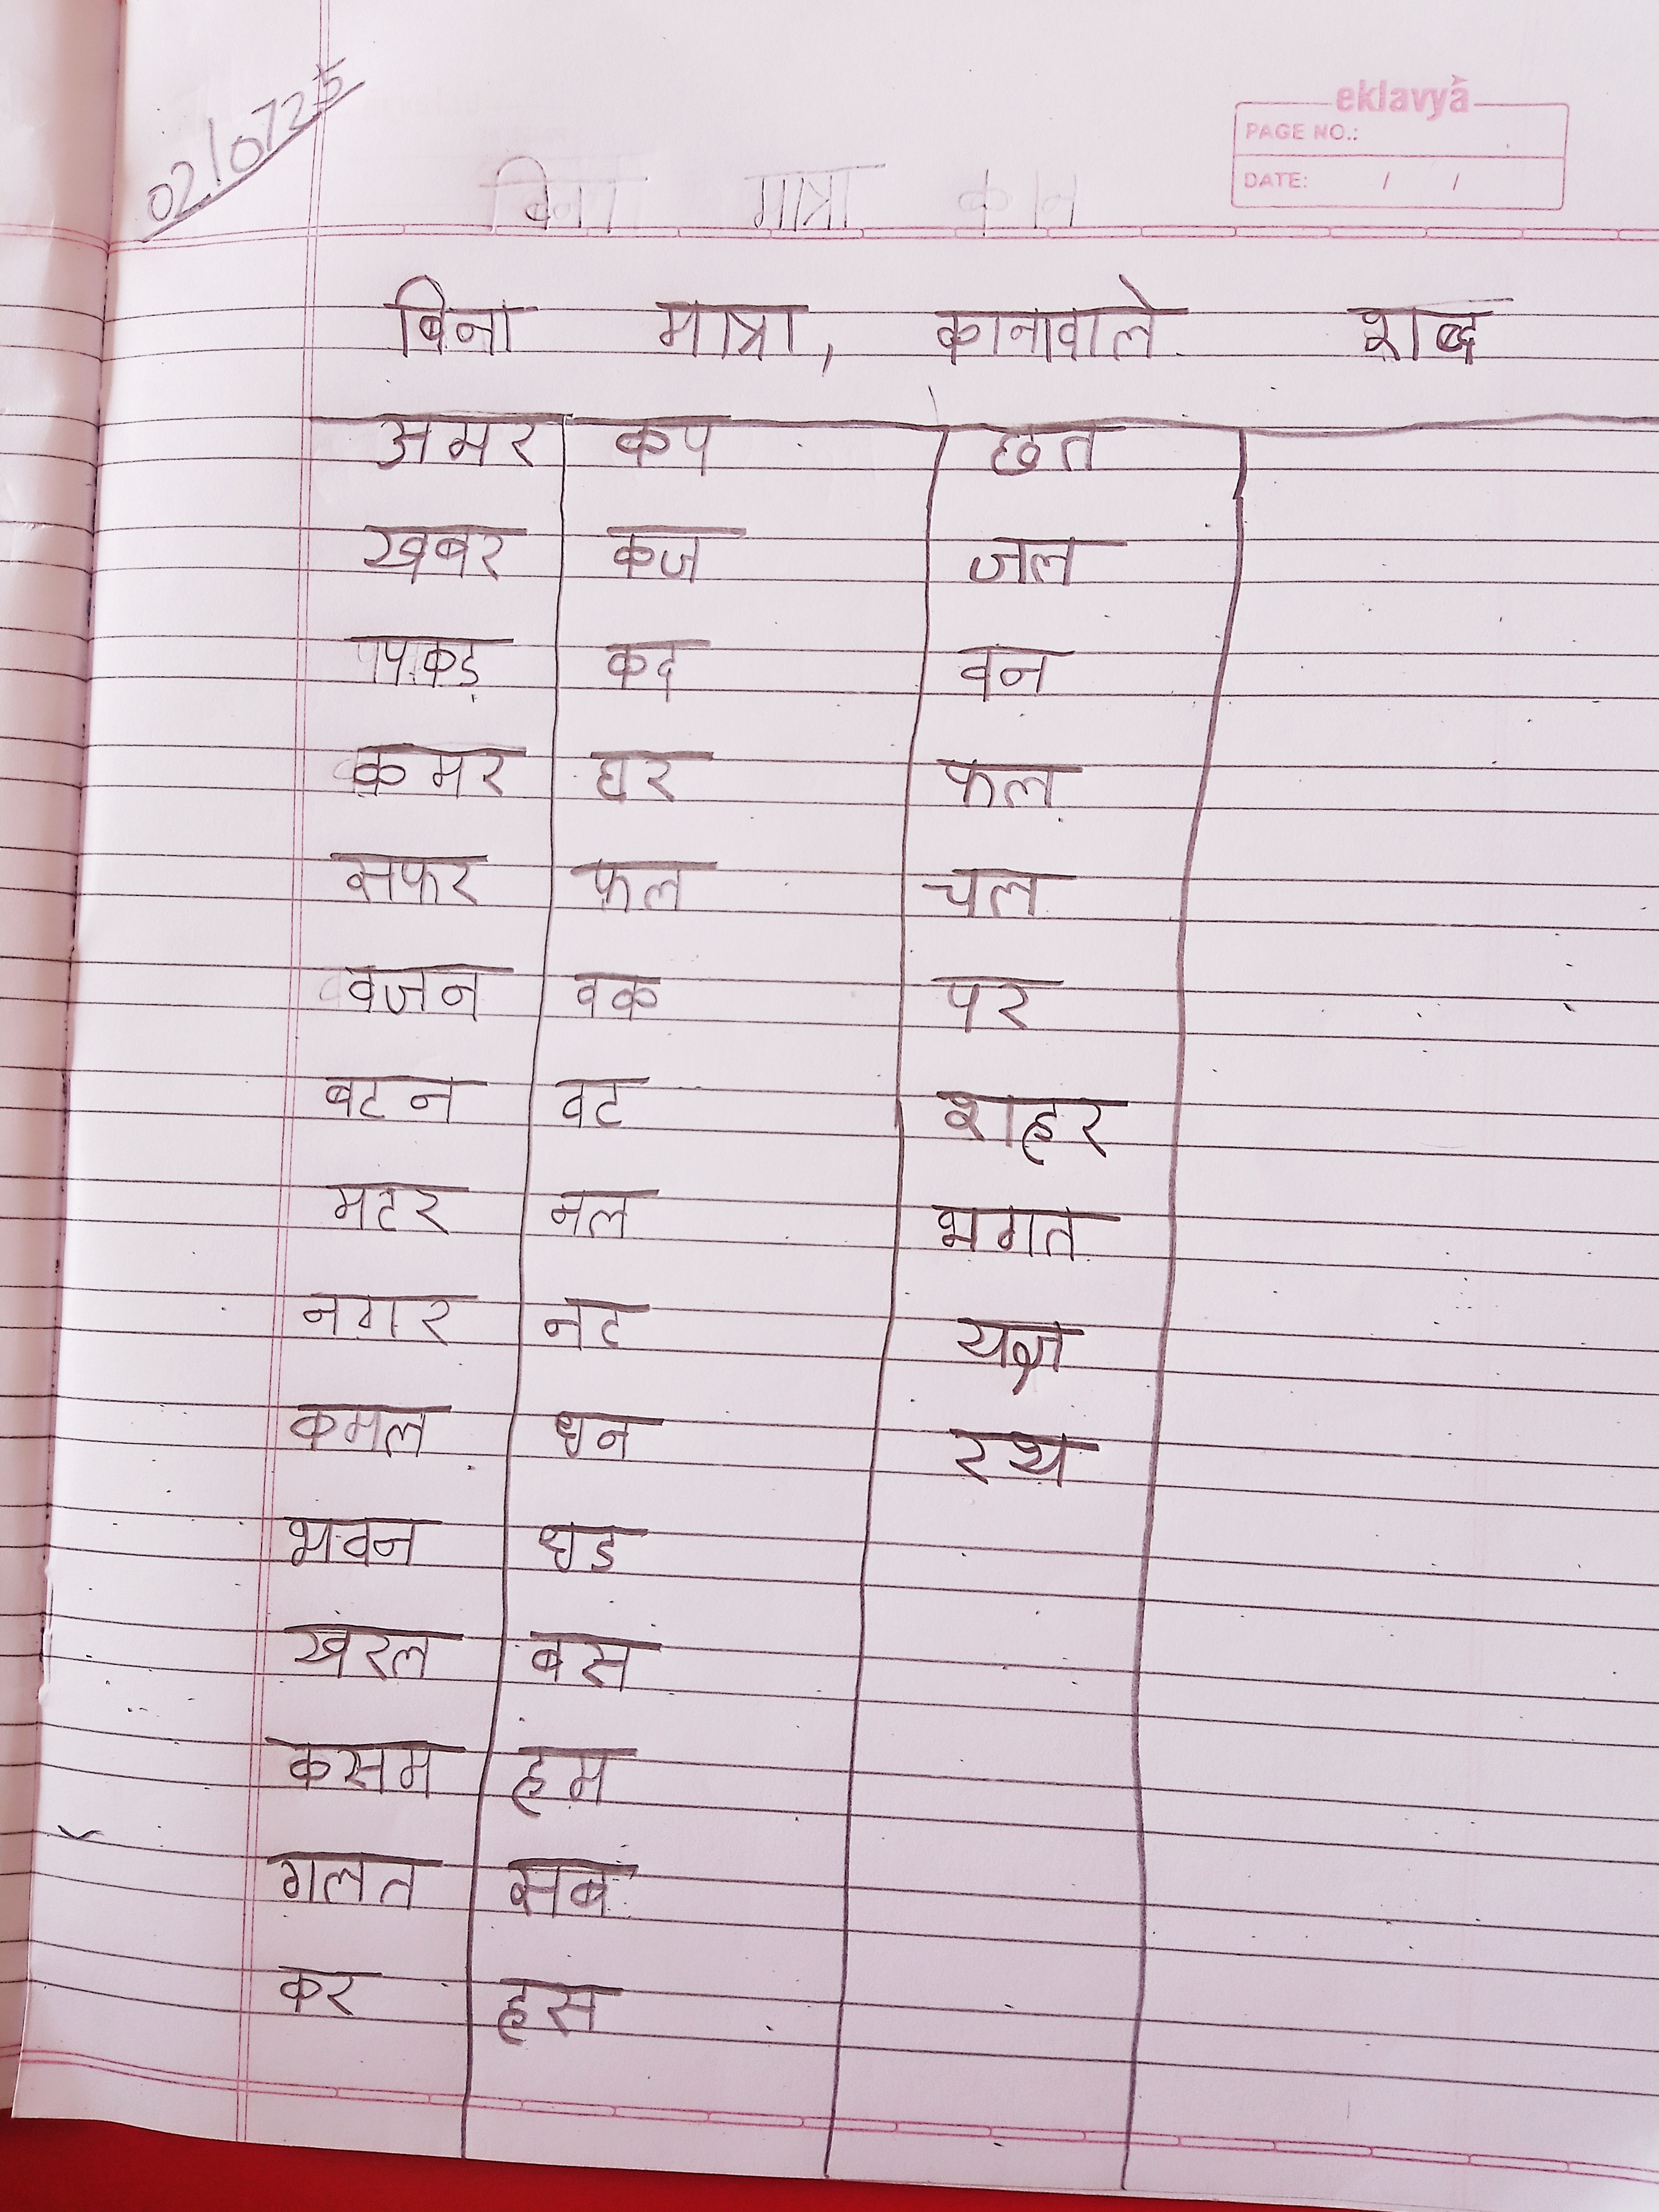 02/07/25
eklavya
PAGE NO.:
DATE: / /
बिना मात्रा
बिना मात्रा, कानावाले शब्द
अमर कप छत
खबर कज जल
पकड़ कद वन
कमर घर फल
सफर फल चल
वजन वक पर
बटन वट शहर
मटर नल भगत
नगर नट यज्ञ
कमल धन रथ
भवन धड
खरल बस
कसम हम
गलत सब
कर हस